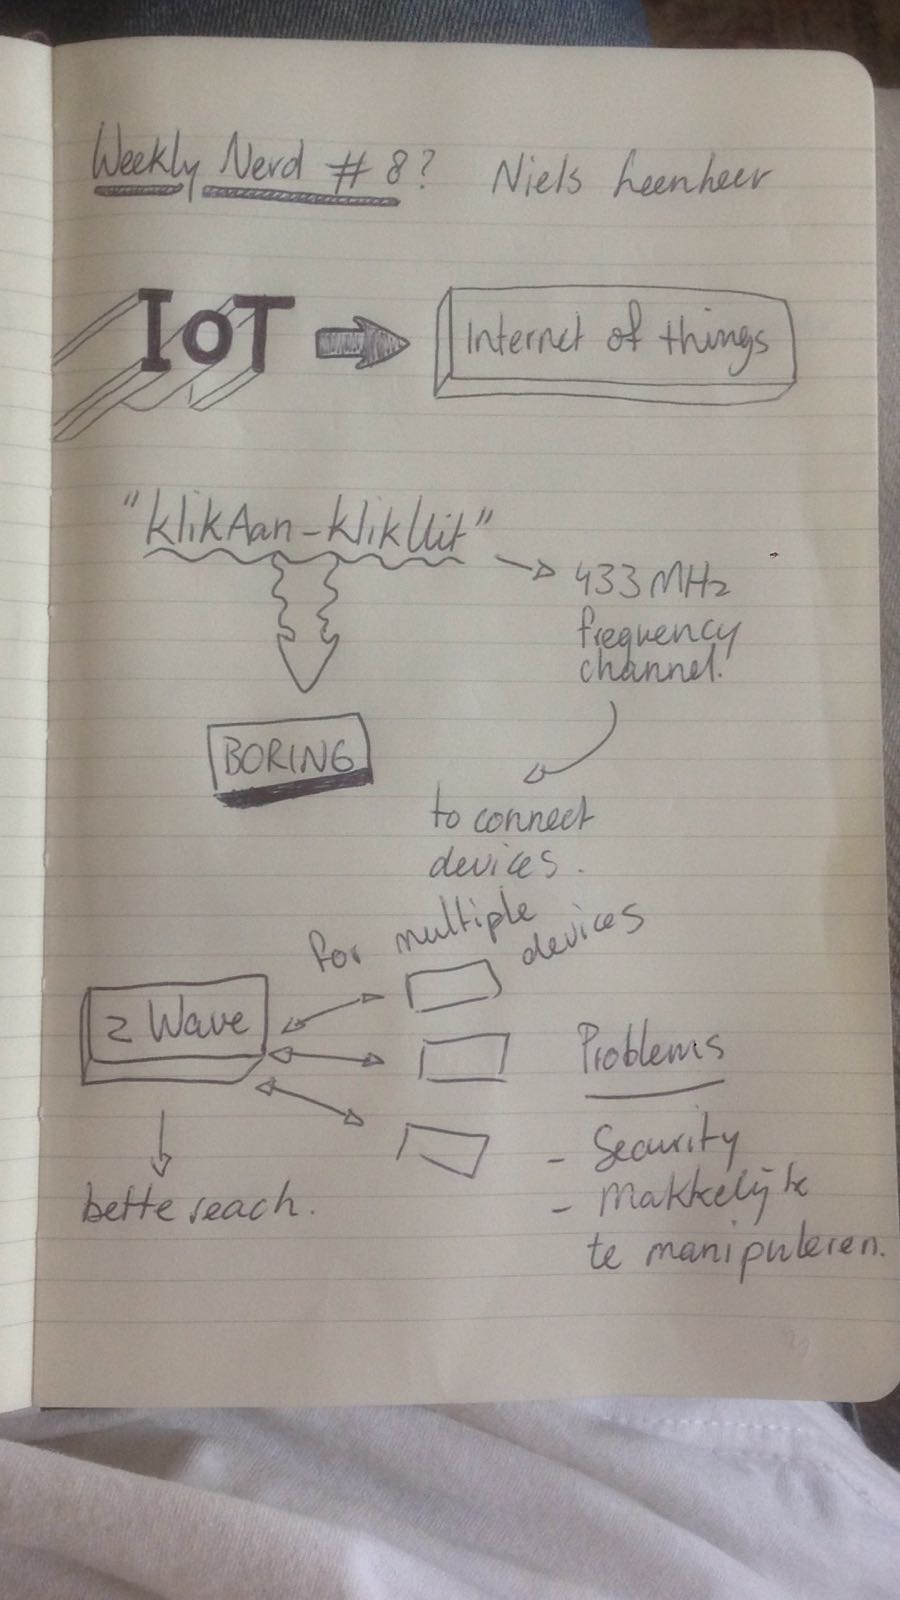 Weekly Nerd # 8? Niels Leenheer
IoT Internet of things
"klikAan-klikUit"
433 MHz
frequency
channel.
BORING
to connect
devices.
for multiple
devices
z Wave
Problems
- Security
- Makkelijk
te manipuleren.
bette reach.